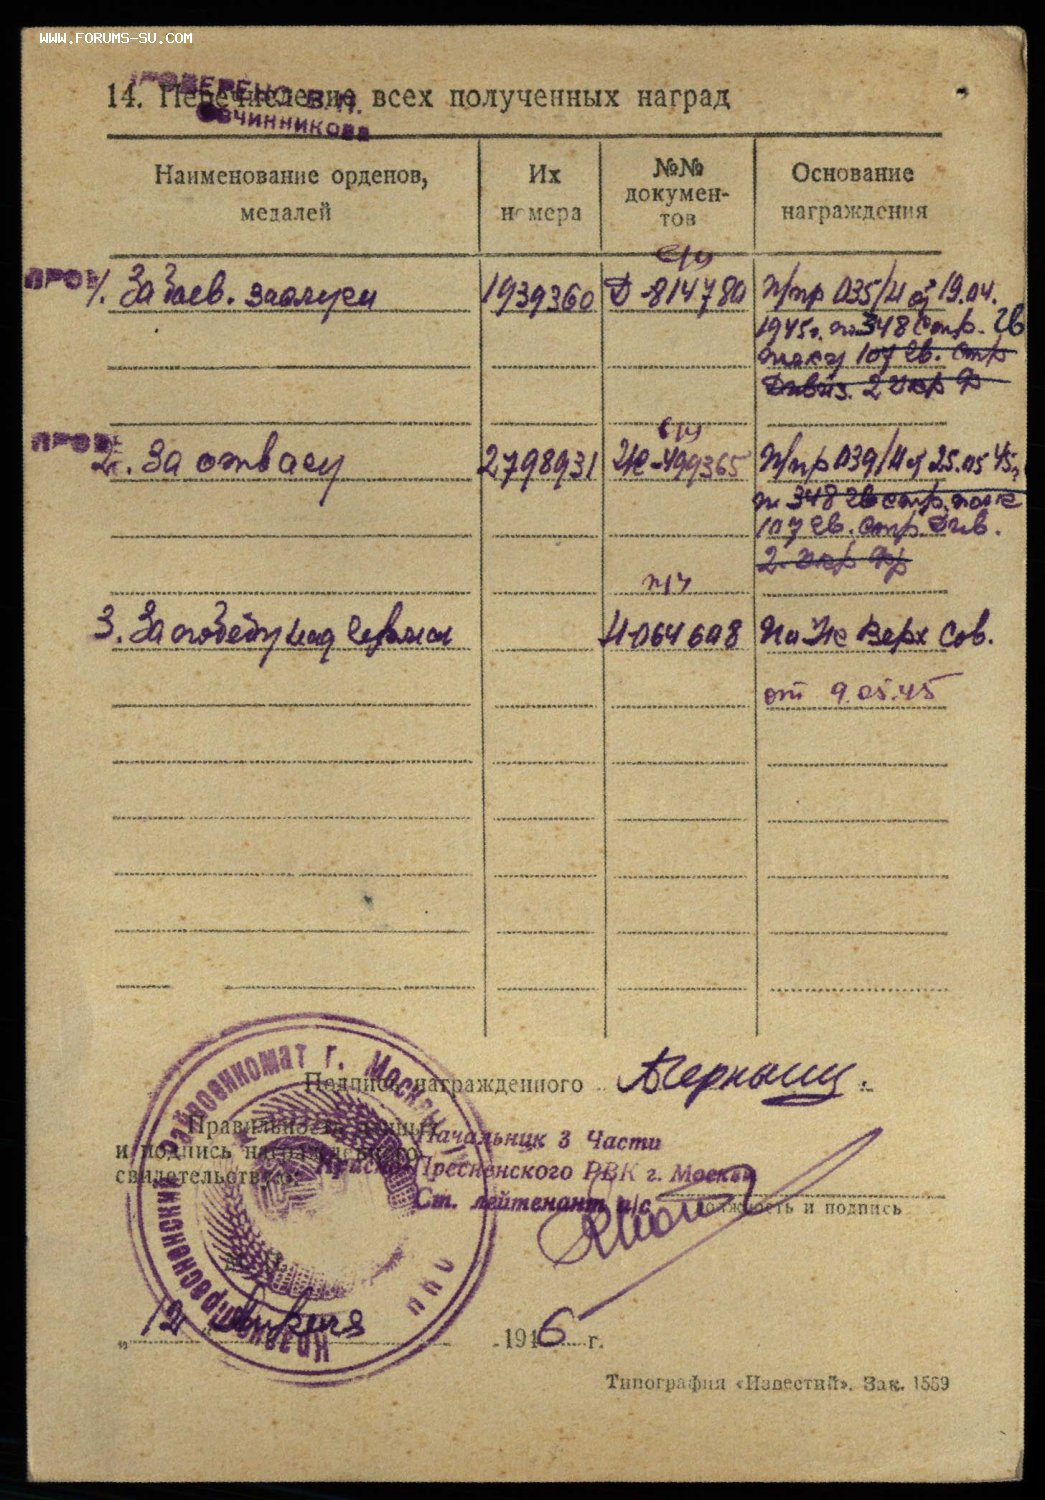 WWW.FORUMS-SU.COM
ПРОВЕРЕНО В.П.
ОВЧИННИКОВА
14. Перечисление всех полученных наград
Наименование орденов, медалей
Их номера
№№ документов
Основание награждения
ПРОВ
1. За боев. заслуги
1939360
с/у
Д-814780
Пр/пр 035/Н от 19.04.
1945г. по 348 стр. гв
полку 107 гв. стр
Дивиз. 2 Укр Ф
ПРОВЕ
2. За отвагу
2798931
б/у
Же-499365
Пр/пр 039/Н от 25.05.45г.
п. 348 гв стр. полк
107 гв. стр. Див.
2. Укр Фр
3. За победу над Герман
п/у
Н-0646 08
По Уке Верх Сов.
от 9.05.45
Подпись награжденного
Правильность данных
и подпись награжденного
свидетельствую:
Начальник 3 Части
Красно-Пресненского РВК г. Москвы
Ст. лейтенант а/с
должность и подпись
Краснопресненский Райвоенкомат г. Москвы
М. П.
„12
1946 г.
Типография «Известий». Зак. 1559